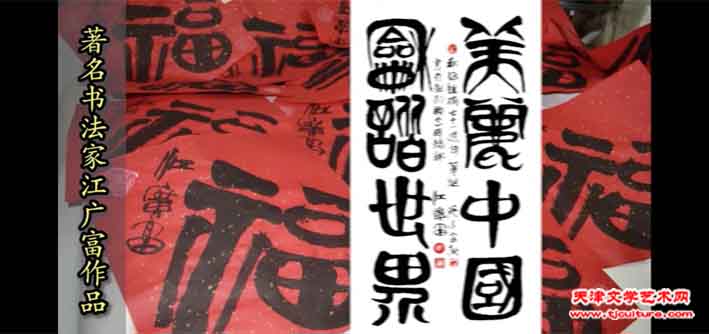 著名书法家江广富作品
福
福
福
福
江廣富
美麗中國
龢諧世界
江廣富
天津文学艺术网
www.tjculture.com